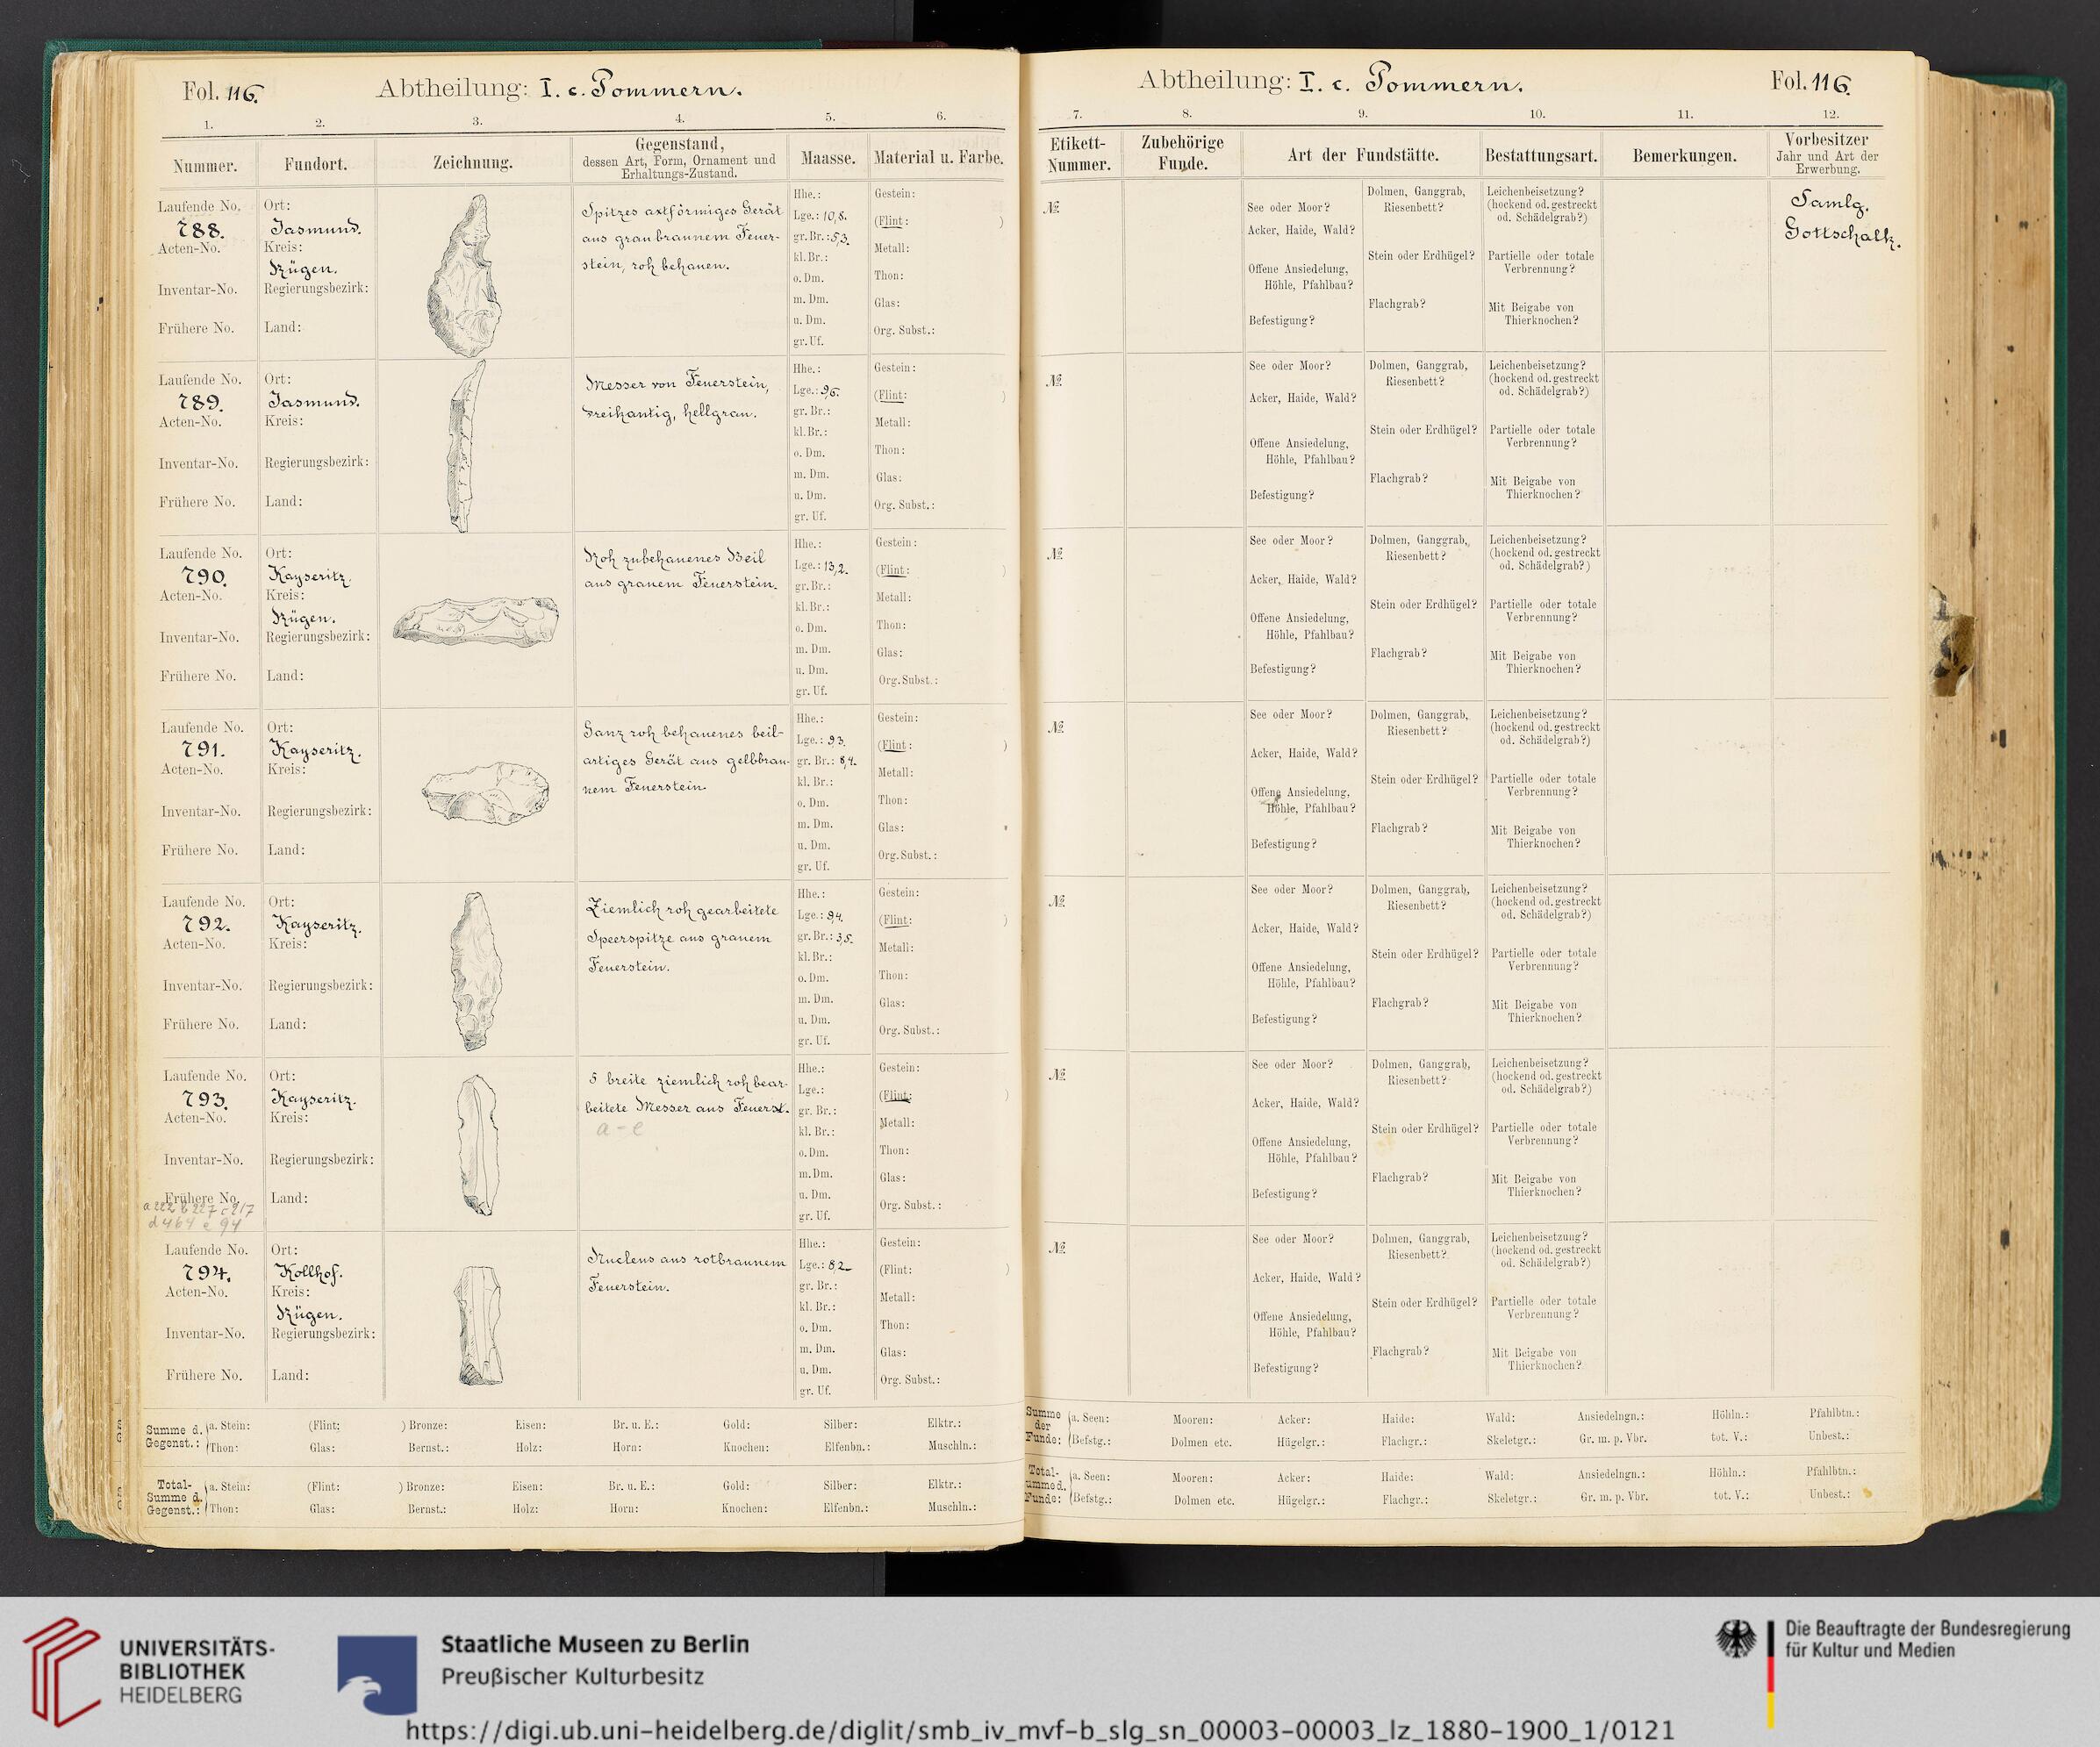 Fol. 116.
Abtheilung: I. c. Pommern.
1.
2.
3.
4.
5.
6.
Nummer.
Fundort.
Zeichnung.
Gegenstand,
dessen Art, Form, Ornament und
Erhaltungs-Zustand.
Maasse.
Material u. Farbe.
Laufende No.
788.
Acten-No.
Inventar-No.
Frühere No.
Ort:
Jasmund.
Kreis:
Rügen.
Regierungsbezirk:
Land:
Spitzes axtförmiges Gerät
aus graubraunem Feuer-
stein, roh behauen.
Hhe.:
Lge.: 10,8.
gr. Br.: 5,3.
kl. Br.:
o. Dm.
m. Dm.
u. Dm.
gr. Uf.
Gestein:
(Flint: )
Metall:
Thon:
Glas:
Org. Subst.:
Laufende No.
789.
Acten-No.
Inventar-No.
Frühere No.
Ort:
Jasmund.
Kreis:
Regierungsbezirk:
Land:
Messer von Feuerstein,
dreikantig, hellgrau.
Hhe.:
Lge.: 9,6.
gr. Br.:
kl. Br.:
o. Dm.
m. Dm.
u. Dm.
gr. Uf.
Gestein:
(Flint: )
Metall:
Thon:
Glas:
Org. Subst.:
Laufende No.
790.
Acten-No.
Inventar-No.
Frühere No.
Ort:
Kayseritz.
Kreis:
Rügen.
Regierungsbezirk:
Land:
Roh zubehauenes Beil
aus grauem Feuerstein.
Hhe.:
Lge.: 13,2.
gr. Br.:
kl. Br.:
o. Dm.
m. Dm.
u. Dm.
gr. Uf.
Gestein:
(Flint: )
Metall:
Thon:
Glas:
Org. Subst.:
Laufende No.
791.
Acten-No.
Inventar-No.
Frühere No.
Ort:
Kayseritz.
Kreis:
Regierungsbezirk:
Land:
Ganz roh behauenes beil-
artiges Gerät aus gelbbrau-
nem Feuerstein.
Hhe.:
Lge.: 9,3.
gr. Br.: 8,4.
kl. Br.:
o. Dm.
m. Dm.
u. Dm.
gr. Uf.
Gestein:
(Flint: )
Metall:
Thon:
Glas:
Org. Subst.:
Laufende No.
792.
Acten-No.
Inventar-No.
Frühere No.
Ort:
Kayseritz.
Kreis:
Regierungsbezirk:
Land:
Ziemlich roh gearbeitete
Speerspitze aus grauem
Feuerstein.
Hhe.:
Lge.: 9,4.
gr. Br.: 3,5.
kl. Br.:
o. Dm.
m. Dm.
u. Dm.
gr. Uf.
Gestein:
(Flint: )
Metall:
Thon:
Glas:
Org. Subst.:
Laufende No.
793.
Acten-No.
Inventar-No.
Frühere No.
a 222 b 227 c 217
d 464 e 94
Ort:
Kayseritz.
Kreis:
Regierungsbezirk:
Land:
5 breite ziemlich roh bear-
beitete Messer aus Feuerst.
a-e
Hhe.:
Lge.:
gr. Br.:
kl. Br.:
o. Dm.
m. Dm.
u. Dm.
gr. Uf.
Gestein:
(Flint: )
Metall:
Thon:
Glas:
Org. Subst.:
Laufende No.
794.
Acten-No.
Inventar-No.
Frühere No.
Ort:
Kollhof.
Kreis:
Rügen.
Regierungsbezirk:
Land:
Nucleus aus rotbraunem
Feuerstein.
Hhe.:
Lge.: 8,2.
gr. Br.:
kl. Br.:
o. Dm.
m. Dm.
u. Dm.
gr. Uf.
Gestein:
(Flint: )
Metall:
Thon:
Glas:
Org. Subst.:
Summe d. Gegenst.:
a. Stein: (Flint: ) Bronze: Eisen: Br. u. E.: Gold: Silber: Elktr.:
Thon: Glas: Bernst.: Holz: Horn: Knochen: Elfenbn.: Muschln.:
Total-Summe d. Gegenst.:
a. Stein: (Flint: ) Bronze: Eisen: Br. u. E.: Gold: Silber: Elktr.:
Thon: Glas: Bernst.: Holz: Horn: Knochen: Elfenbn.: Muschln.:
Abtheilung: I. c. Pommern.
Fol. 116.
7.
8.
9.
10.
11.
12.
Etikett-
Nummer.
Zubehörige
Funde.
Art der Fundstätte.
Bestattungsart.
Bemerkungen.
Vorbesitzer
Jahr und Art der
Erwerbung.
№
See oder Moor?
Acker, Haide, Wald?
Offene Ansiedelung,
Höhle, Pfahlbau?
Befestigung?
Dolmen, Ganggrab,
Riesenbett?
Stein oder Erdhügel?
Flachgrab?
Leichenbeisetzung?
(hockend od. gestreckt
od. Schädelgrab?)
Partielle oder totale
Verbrennung?
Mit Beigabe von
Thierknochen?
Samlg.
Gottschalk.
№
See oder Moor?
Acker, Haide, Wald?
Offene Ansiedelung,
Höhle, Pfahlbau?
Befestigung?
Dolmen, Ganggrab,
Riesenbett?
Stein oder Erdhügel?
Flachgrab?
Leichenbeisetzung?
(hockend od. gestreckt
od. Schädelgrab?)
Partielle oder totale
Verbrennung?
Mit Beigabe von
Thierknochen?
№
See oder Moor?
Acker, Haide, Wald?
Offene Ansiedelung,
Höhle, Pfahlbau?
Befestigung?
Dolmen, Ganggrab,
Riesenbett?
Stein oder Erdhügel?
Flachgrab?
Leichenbeisetzung?
(hockend od. gestreckt
od. Schädelgrab?)
Partielle oder totale
Verbrennung?
Mit Beigabe von
Thierknochen?
№
See oder Moor?
Acker, Haide, Wald?
Offene Ansiedelung,
Höhle, Pfahlbau?
Befestigung?
Dolmen, Ganggrab,
Riesenbett?
Stein oder Erdhügel?
Flachgrab?
Leichenbeisetzung?
(hockend od. gestreckt
od. Schädelgrab?)
Partielle oder totale
Verbrennung?
Mit Beigabe von
Thierknochen?
№
See oder Moor?
Acker, Haide, Wald?
Offene Ansiedelung,
Höhle, Pfahlbau?
Befestigung?
Dolmen, Ganggrab,
Riesenbett?
Stein oder Erdhügel?
Flachgrab?
Leichenbeisetzung?
(hockend od. gestreckt
od. Schädelgrab?)
Partielle oder totale
Verbrennung?
Mit Beigabe von
Thierknochen?
№
See oder Moor?
Acker, Haide, Wald?
Offene Ansiedelung,
Höhle, Pfahlbau?
Befestigung?
Dolmen, Ganggrab,
Riesenbett?
Stein oder Erdhügel?
Flachgrab?
Leichenbeisetzung?
(hockend od. gestreckt
od. Schädelgrab?)
Partielle oder totale
Verbrennung?
Mit Beigabe von
Thierknochen?
№
See oder Moor?
Acker, Haide, Wald?
Offene Ansiedelung,
Höhle, Pfahlbau?
Befestigung?
Dolmen, Ganggrab,
Riesenbett?
Stein oder Erdhügel?
Flachgrab?
Leichenbeisetzung?
(hockend od. gestreckt
od. Schädelgrab?)
Partielle oder totale
Verbrennung?
Mit Beigabe von
Thierknochen?
Summe der Funde:
a. Seen: Mooren: Acker: Haide: Wald: Ansiedelngn.: Höhln.: Pfahlbtn.:
Befstg.: Dolmen etc. Hügelgr.: Flachgr.: Skeletgr.: Gr. m. p. Vbr. tot. V.: Unbest.:
Total-summe d. Funde:
a. Seen: Mooren: Acker: Haide: Wald: Ansiedelngn.: Höhln.: Pfahlbtn.:
Befstg.: Dolmen etc. Hügelgr.: Flachgr.: Skeletgr.: Gr. m. p. Vbr. tot. V.: Unbest.:
UNIVERSITÄTS-
BIBLIOTHEK
HEIDELBERG
Staatliche Museen zu Berlin
Preußischer Kulturbesitz
Die Beauftragte der Bundesregierung
für Kultur und Medien
https://digi.ub.uni-heidelberg.de/diglit/smb_iv_mvf-b_slg_sn_00003-00003_lz_1880-1900_1/0121